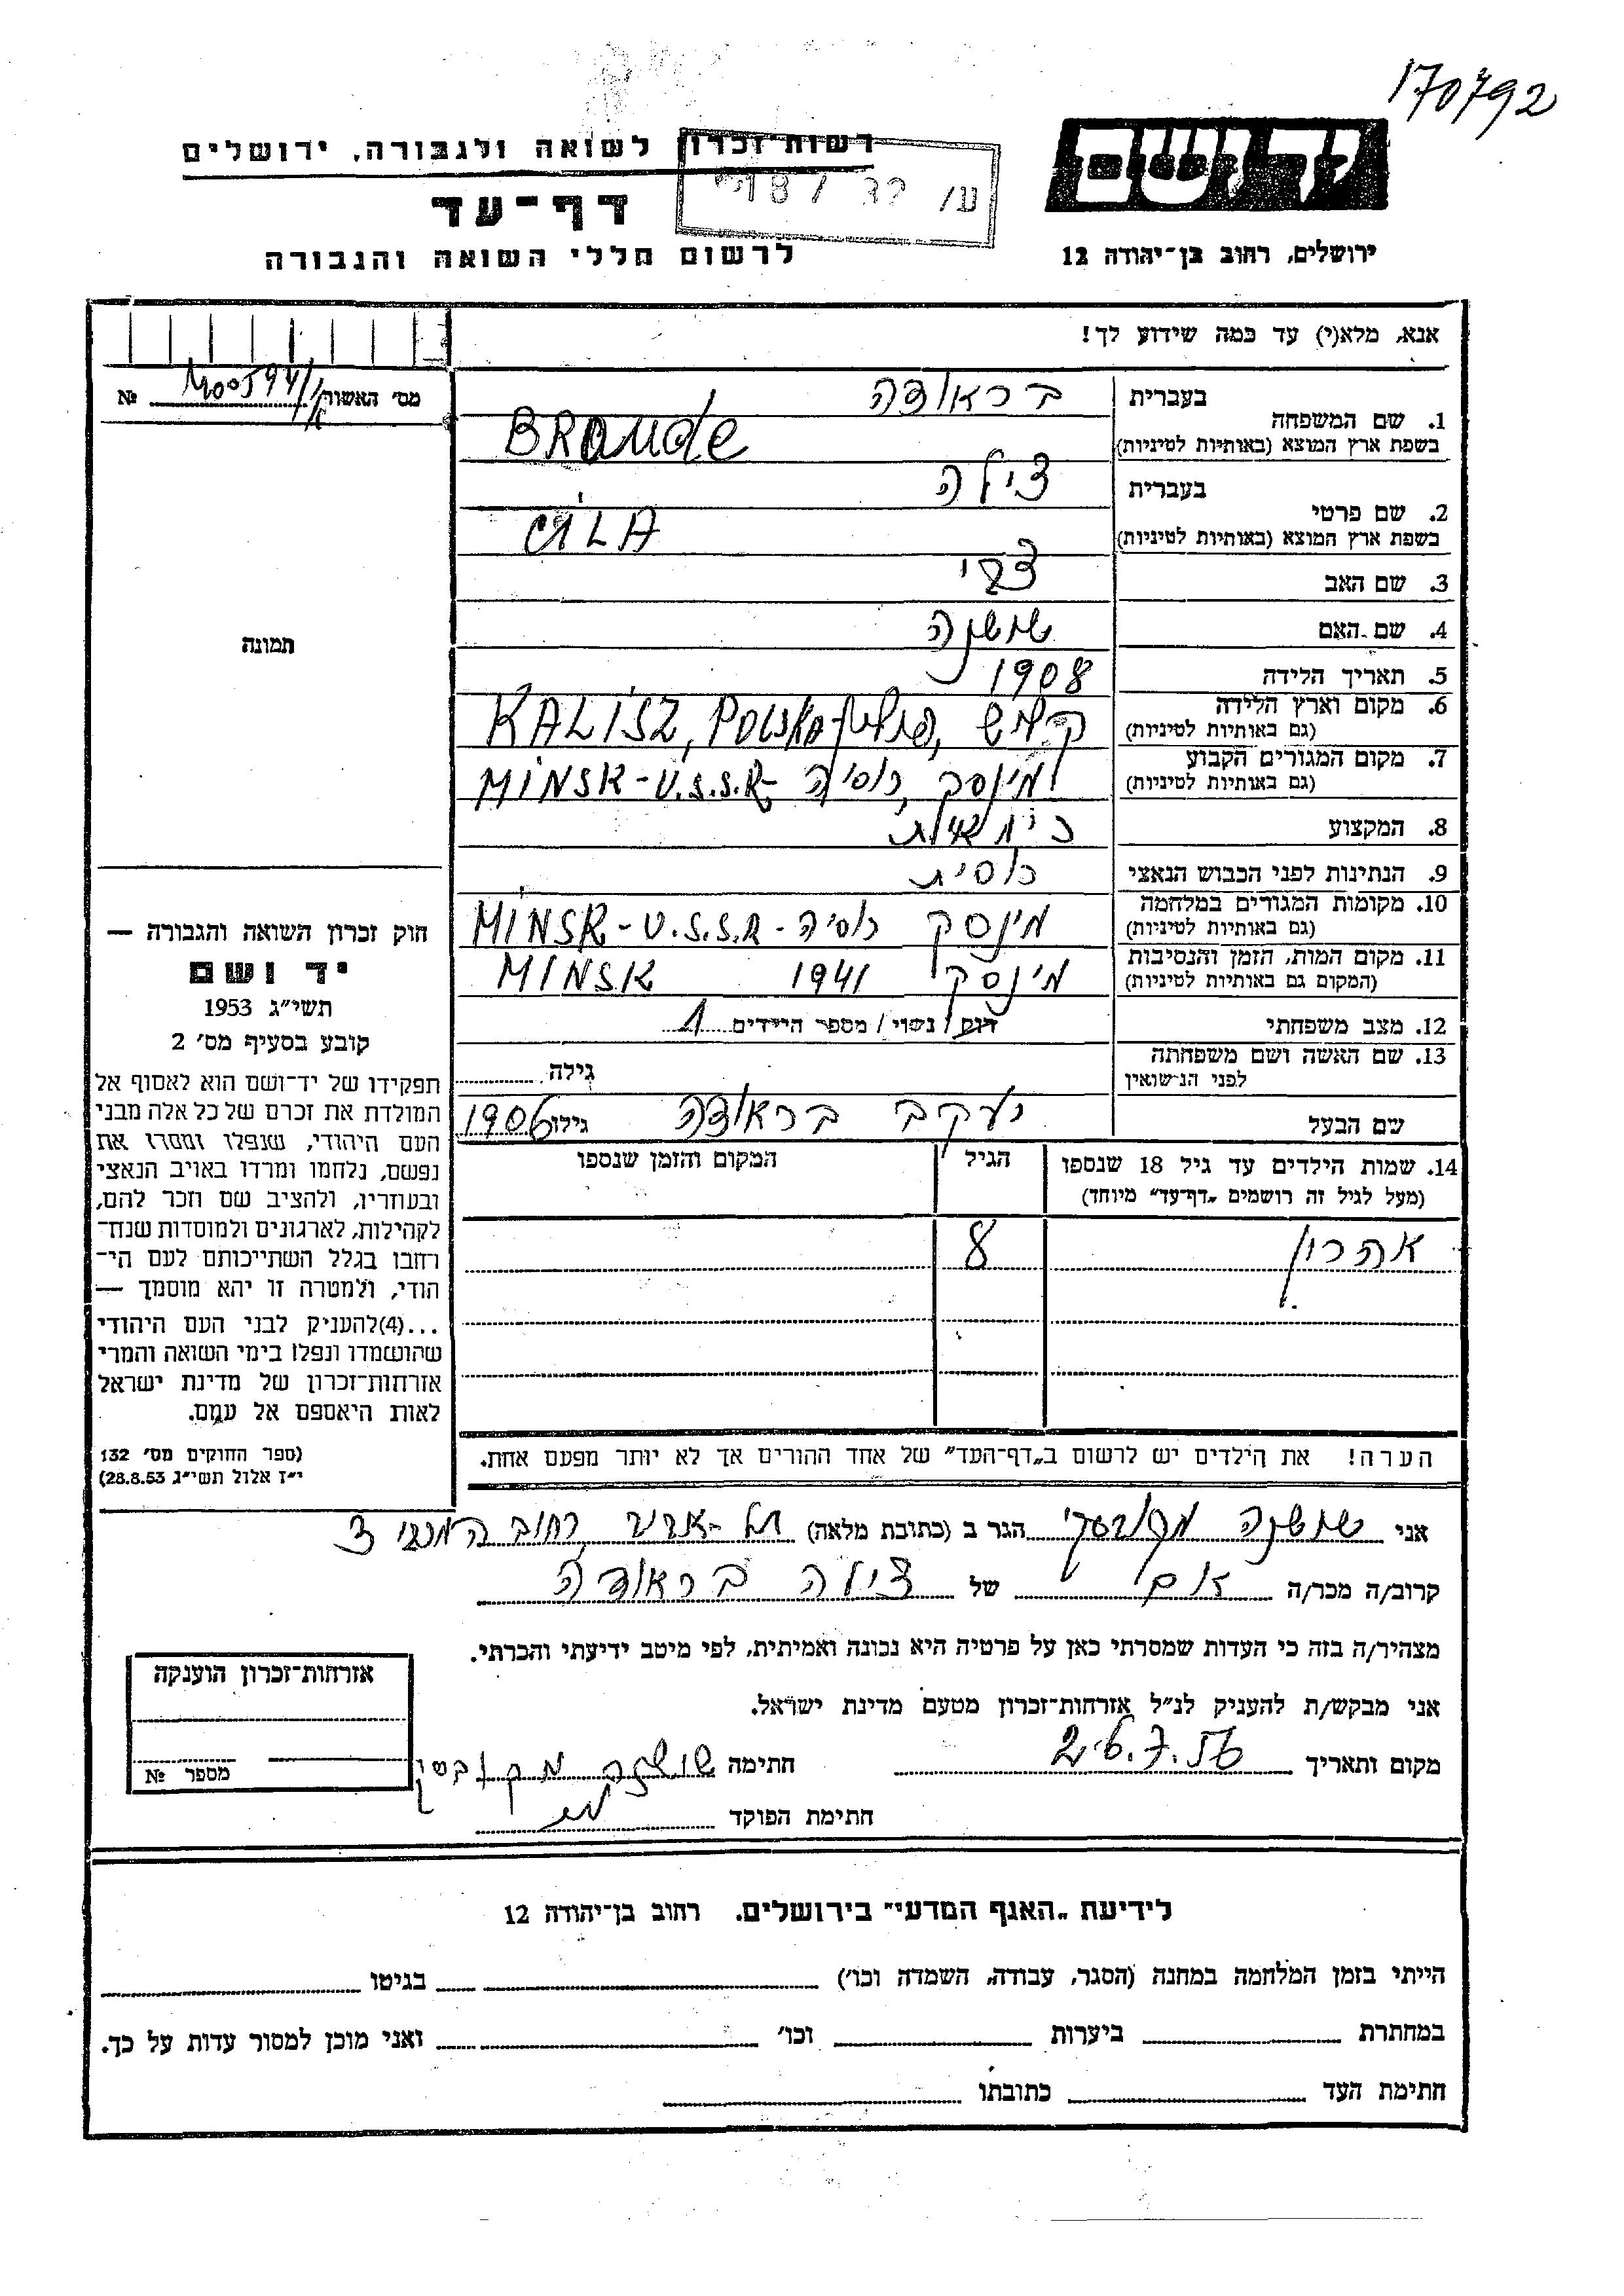 170792
רשות־זכרון לשואה ולגבורה, ירושלים
ע/ 32 / 18
דף־עד
לרשום חללי השואה והגבורה
יד ושם
ירושלים, רחוב בן־יהודה 12
אנא, מלא(י) עד כמה שידוע לך!
מס׳ האשור №
1. שם המשפחה
בעברית בראודה
בשפת ארץ המוצא (באותיות לטיניות) BRAUDE
2. שם פרטי
בעברית צילה
בשפת ארץ המוצא (באותיות לטיניות) CILA
3. שם האב צבי
4. שם האם שושנה
5. תאריך הלידה 1908
6. מקום וארץ הלידה
(גם באותיות לטיניות) קליש, פולין- KALISZ, POLSKA
7. מקום המגורים הקבוע
(גם באותיות לטיניות) מינסק, רוסיה - MINSK-U.S.S.R
8. המקצוע
9. הנתינות לפני הכבוש הנאצי רוסית
10. מקומות המגורים במלחמה
(גם באותיות לטיניות) מינסק רוסיה - MINSK-U.S.S.R
11. מקום המות, הזמן והנסיבות
(המקום גם באותיות לטיניות) מינסק 1941 MINSK
12. מצב משפחתי רווק / נשוי / מספר הילדים 1
13. שם האשה ושם משפחתה
לפני הנישואין גילה
שם הבעל יעקב בראודה גילו 1906
14. שמות הילדים עד גיל 18 שנספו
(מעל לגיל זה רושמים „דף־עד״ מיוחד)
הגיל
המקום והזמן שנספו
אהרון 8
הערה! את הילדים יש לרשום ב„דף־העד״ של אחד ההורים אך לא יותר מפעם אחת.
תמונה
חוק זכרון השואה והגבורה —
יד ושם
תשי״ג 1953
קובע בסעיף מס׳ 2
תפקידו של יד־ושם הוא לאסוף אל
המולדת את זכרם של כל אלה מבני
העם היהודי, שנפלו ומסרו את
נפשם, נלחמו ומרדו באויב הנאצי
ובעוזריו, ולהציב שם וזכר להם,
לקהילות, לארגונים ולמוסדות שנח־
רחבו בגלל השתייכותם לעם הי־
הודי, ולמטרה זו יהא מוסמך —
...(4)להעניק לבני העם היהודי
שהושמדו ונפלו בימי השואה והמרי
אזרחות־זכרון של מדינת ישראל
לאות היאספם אל עמם.
(ספר החוקים מס׳ 132
י״ז אלול תשי״ג 28.8.53)
אני שושנה הגר ב (כתובת מלאה) תל-אביב רחוב המכבי 3
קרוב/ה מכר/ה אם של צילה בראודה
מצהיר/ה בזה כי העדות שמסרתי כאן על פרטיה היא נכונה ואמיתית, לפי מיטב ידיעתי והכרתי.
אני מבקש/ת להעניק לנ״ל אזרחות־זכרון מטעם מדינת ישראל.
מקום ותאריך 26.7.56 חתימה שושנה
חתימת הפוקד
אזרחות־זכרון הוענקה
מספר №
לידיעת „האגף המדעי״ בירושלים. רחוב בן־יהודה 12
הייתי בזמן המלחמה במחנה (הסגר, עבודה, השמדה וכו׳) בגיטו
במחתרת ביערות וכו׳ ואני מוכן למסור עדות על כך.
חתימת העד כתובתו